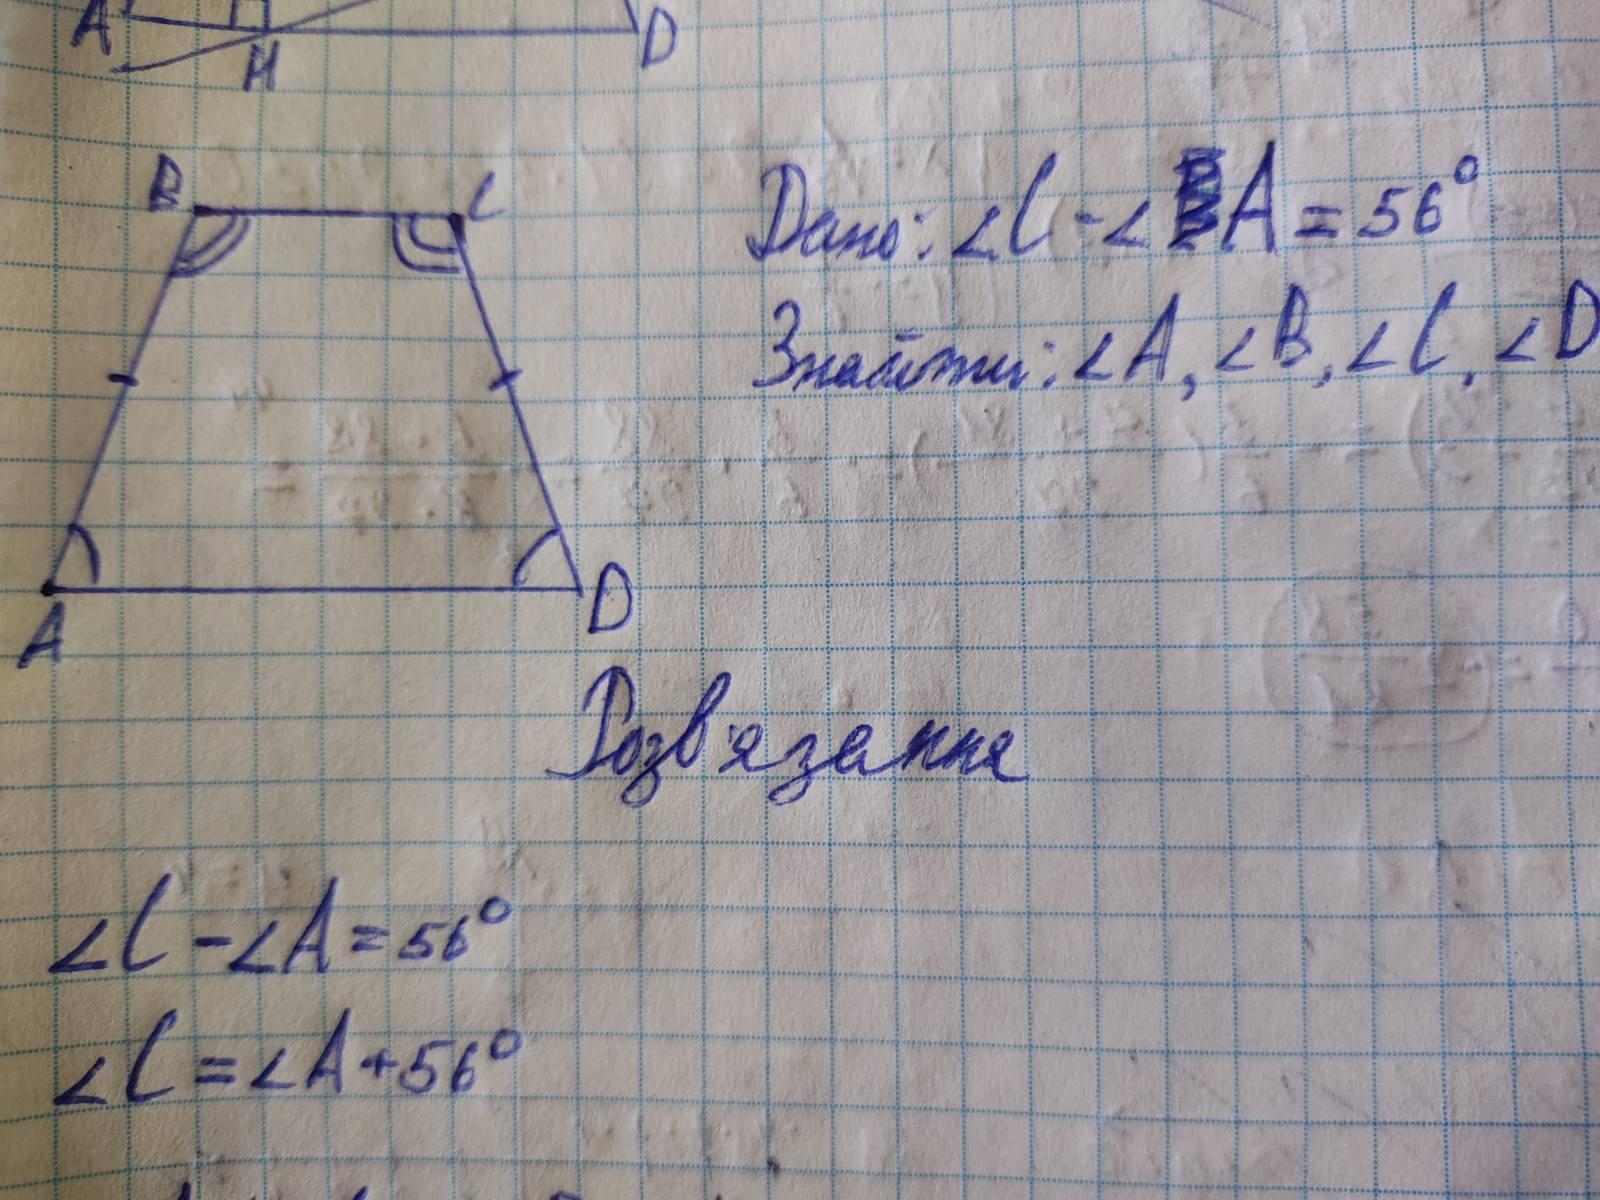 A H D
B C
Дано: ∠C - ∠A = 56°
Знайти: ∠A, ∠B, ∠C, ∠D
A D
Розв'язання
∠C - ∠A = 56°
∠C = ∠A + 56°